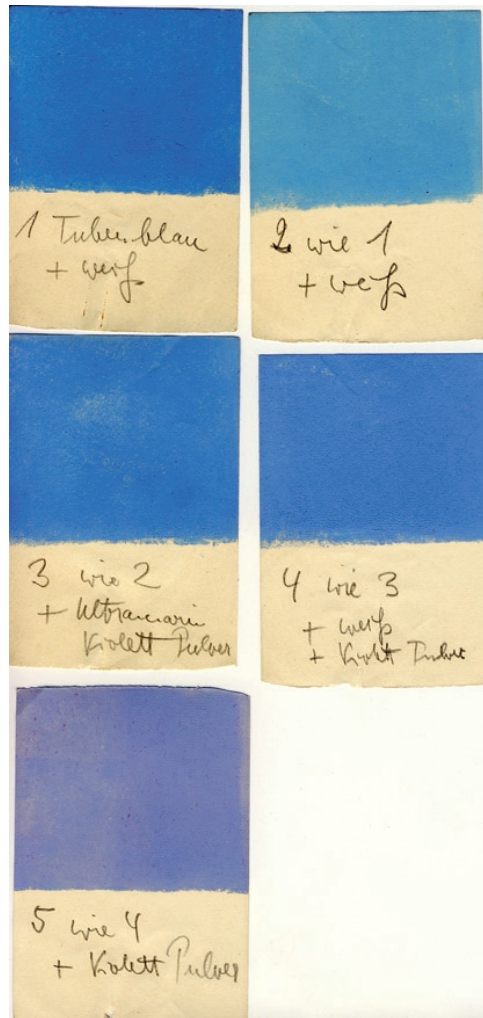 1 Tubenblau
+ weiß
2 wie 1
+ weiß
3 wie 2
+ Ultramarin
Violett Pulver
4 wie 3
+ weiß
+ Violett Pulver
5 wie 4
+ Violett Pulver